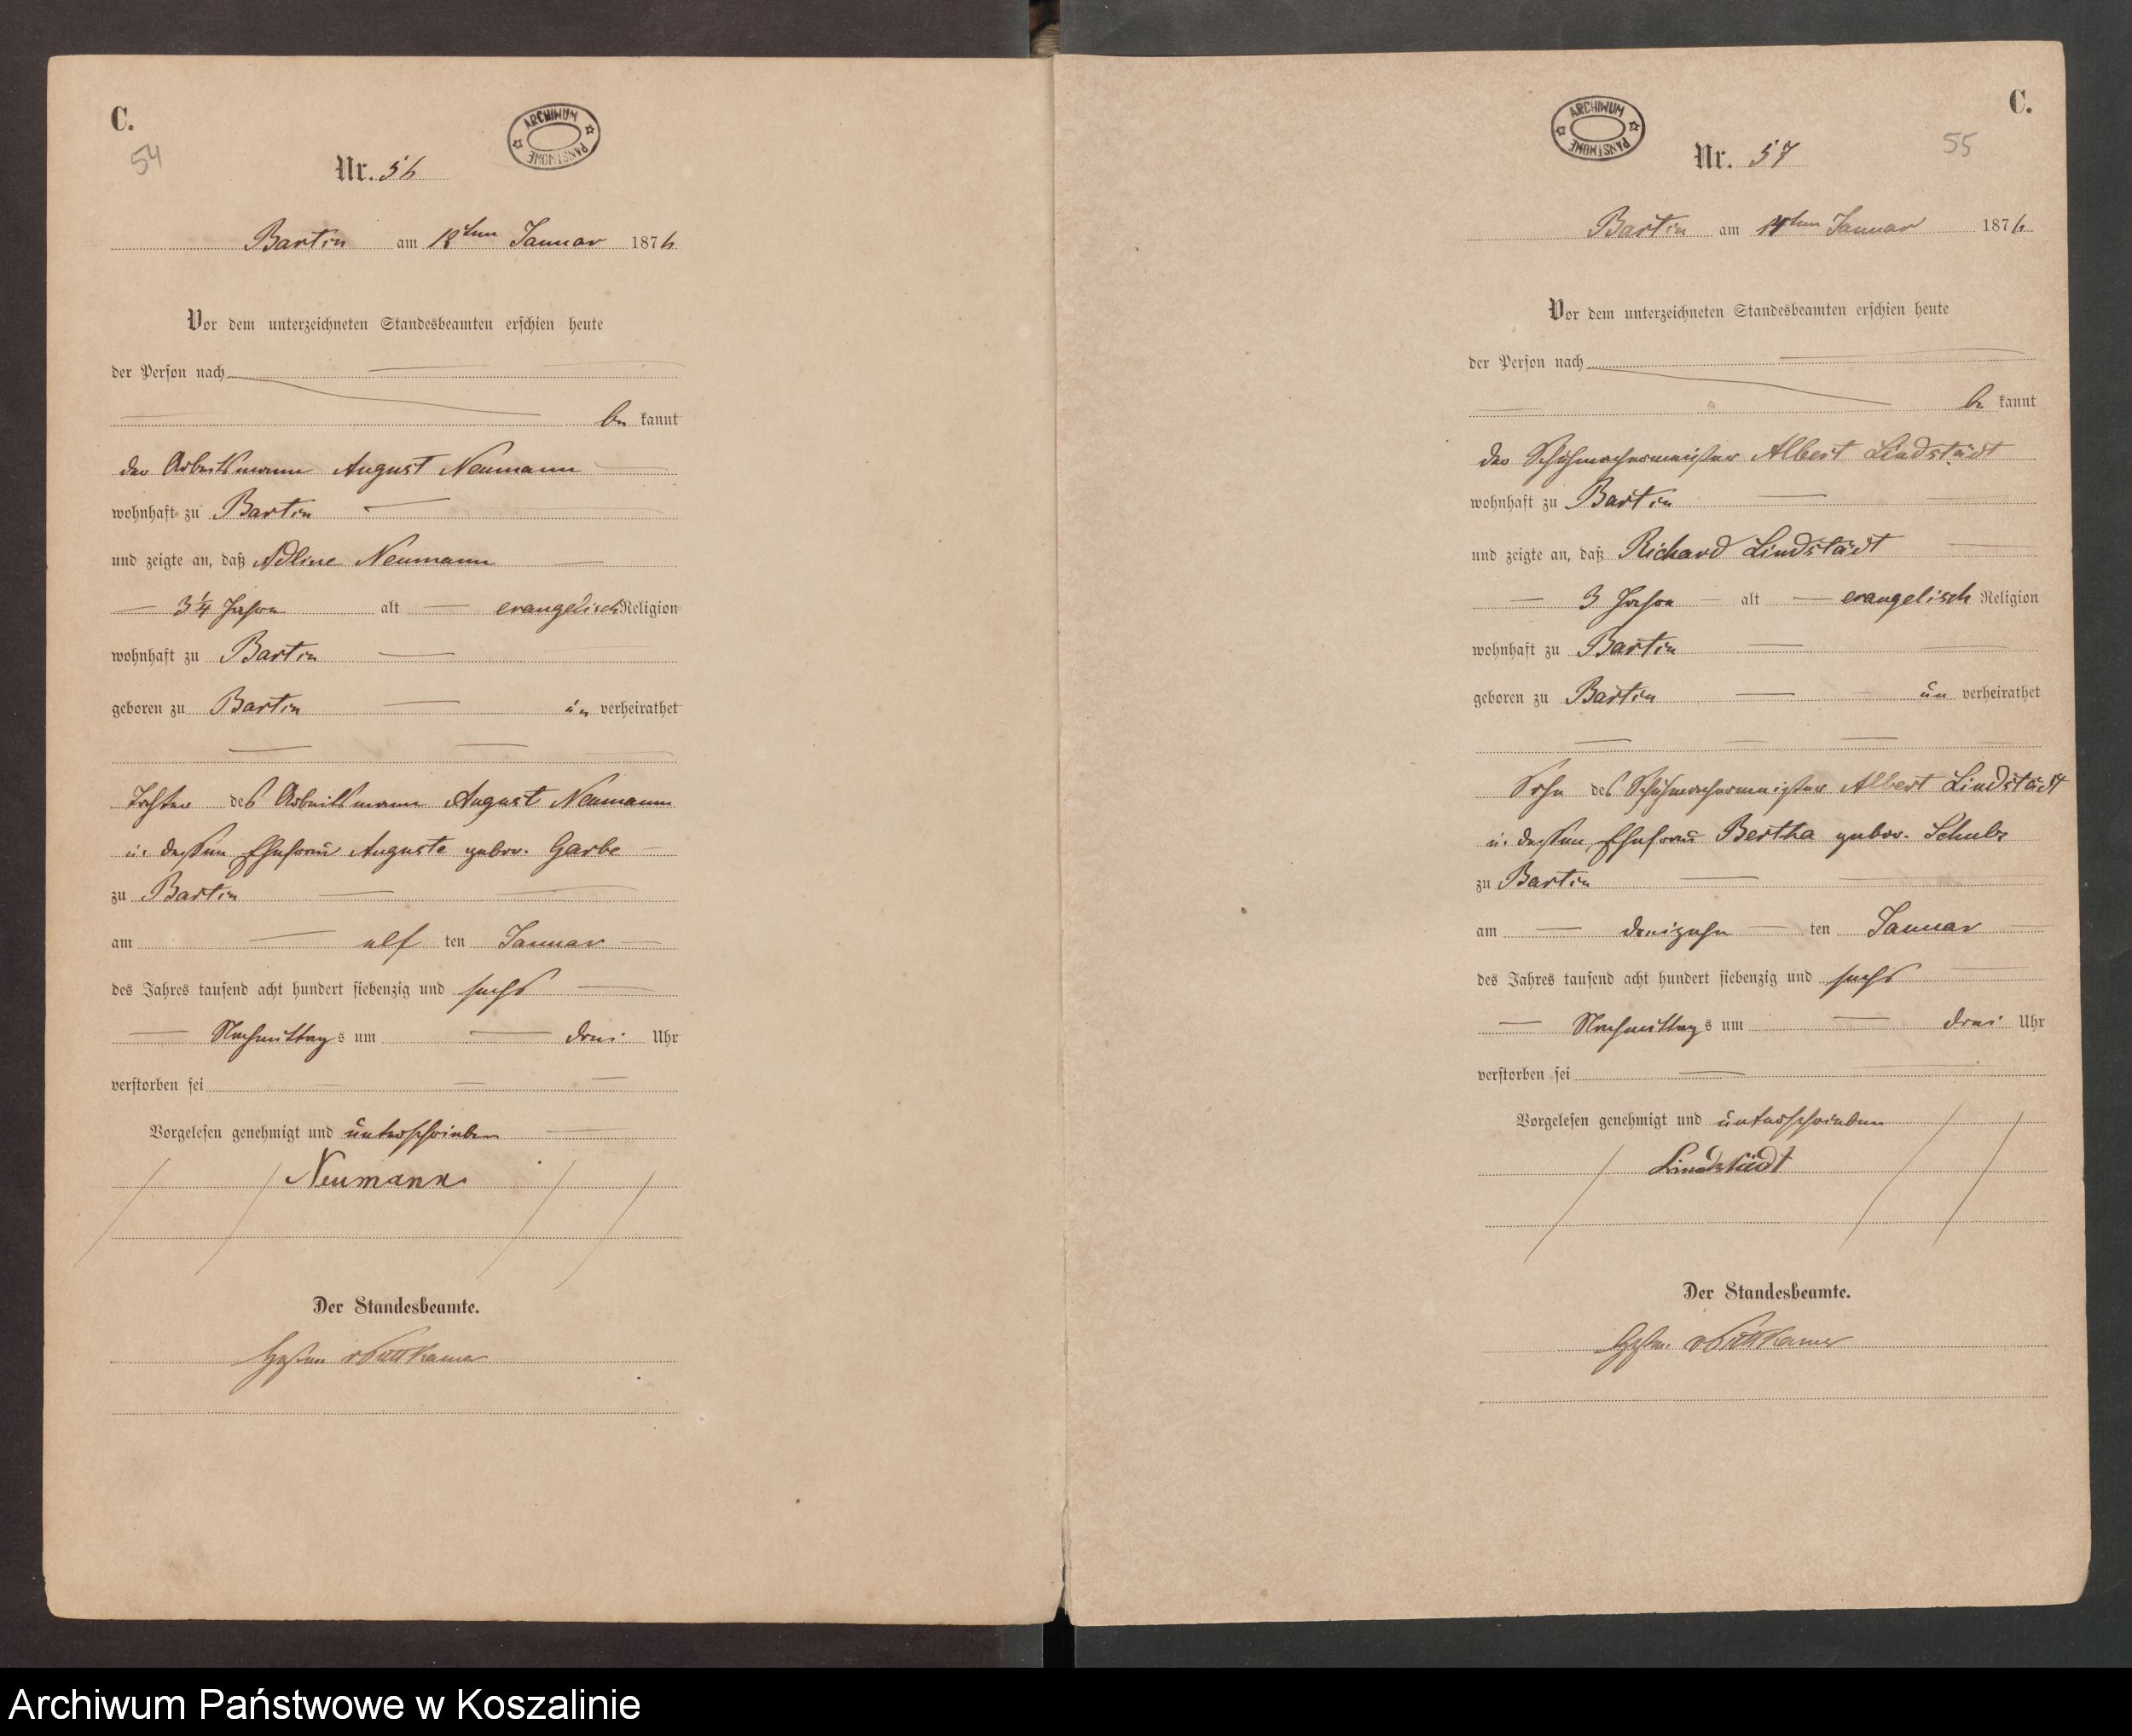 C.
54
ARCHIWUM PAŃSTWOWE
Nr. 56
Bartin am 12ten Januar 1876
Vor dem unterzeichneten Standesbeamten erschien heute
der Person nach
be kannt
der Arbeitsmann August Neumann
wohnhaft zu Bartin
und zeigte an, daß Adline Neumann
3 1/4 Jahre alt evangelisch Religion
wohnhaft zu Bartin
geboren zu Bartin un verheirathet
Tochter des Arbeitsmann August Neumann
u. dessen Ehefrau Auguste gebor. Garbe
zu Bartin
am elf ten Januar
des Jahres tausend acht hundert siebenzig und sechs
Nachmittag s um drei Uhr
verstorben sei
Vorgelesen genehmigt und unterschrieben
Neumann
Der Standesbeamte.
v Puttkamer
C.
55
ARCHIWUM PAŃSTWOWE
Nr. 57
Bartin am 14ten Januar 1876
Vor dem unterzeichneten Standesbeamten erschien heute
der Person nach
be kannt
der Schuhmachermeister Albert Lindstädt
wohnhaft zu Bartin
und zeigte an, daß Richard Lindstädt
3 Jahre alt evangelisch Religion
wohnhaft zu Bartin
geboren zu Bartin un verheirathet
Sohn des Schuhmachermeister Albert Lindstädt
u. dessen Ehefrau Bertha gebor. Schulz
zu Bartin
am dreizehn ten Januar
des Jahres tausend acht hundert siebenzig und sechs
Nachmittag s um drei Uhr
verstorben sei
Vorgelesen genehmigt und unterschrieben
Lindstädt
Der Standesbeamte.
v Puttkamer
Archiwum Państwowe w Koszalinie